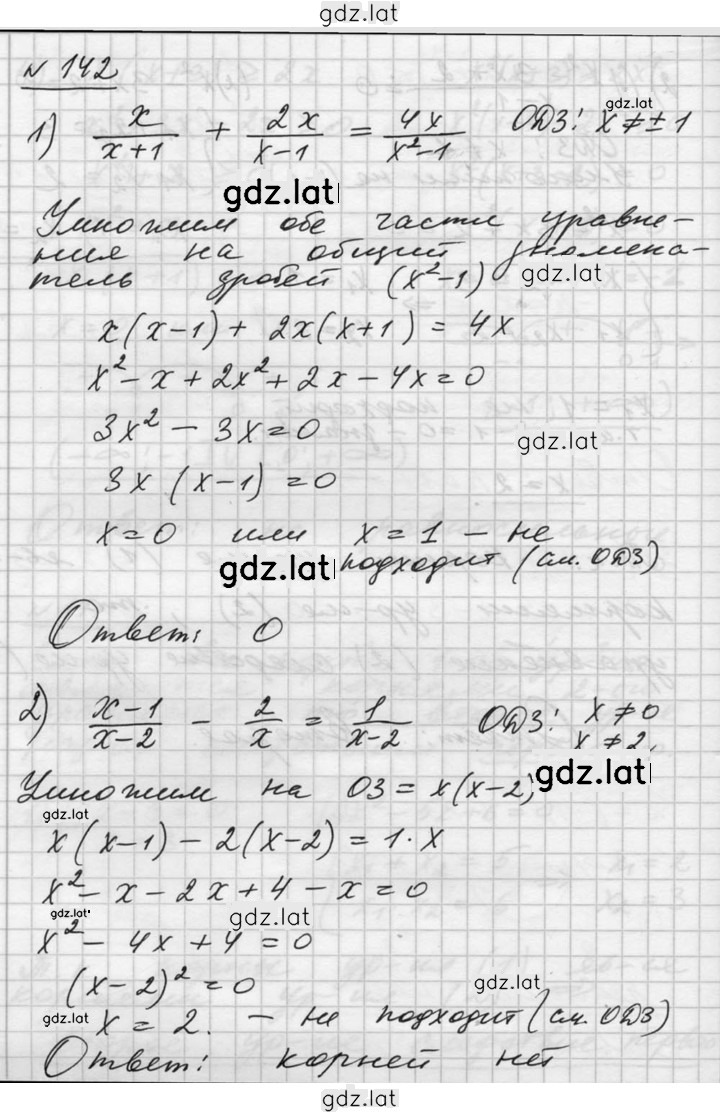 gdz.lat
N 142
1) x/(x+1) + 2x/(x-1) = 4x/(x²-1) ОДЗ: x ≠ ± 1
gdz.lat
gdz.lat
Умножим обе части уравне-
ния на общий знамена-
тель дробей (x²-1)
gdz.lat
x(x-1) + 2x(x+1) = 4x
x² - x + 2x² + 2x - 4x = 0
3x² - 3x = 0
gdz.lat
3x (x-1) = 0
x = 0 или x = 1 - не
gdz.lat подходит (см. ОДЗ)
Ответ: 0
2) (x-1)/(x-2) - 2/x = 1/(x-2) ОДЗ: x ≠ 0
x ≠ 2.
Умножим на ОЗ = x(x-2)
gdz.lat
gdz.lat
x(x-1) - 2(x-2) = 1·x
x² - x - 2x + 4 - x = 0
gdz.lat
gdz.lat
x² - 4x + 4 = 0
(x-2)² = 0
gdz.lat
gdz.lat x = 2. - не подходит (см. ОДЗ)
Ответ: корней нет
gdz.lat